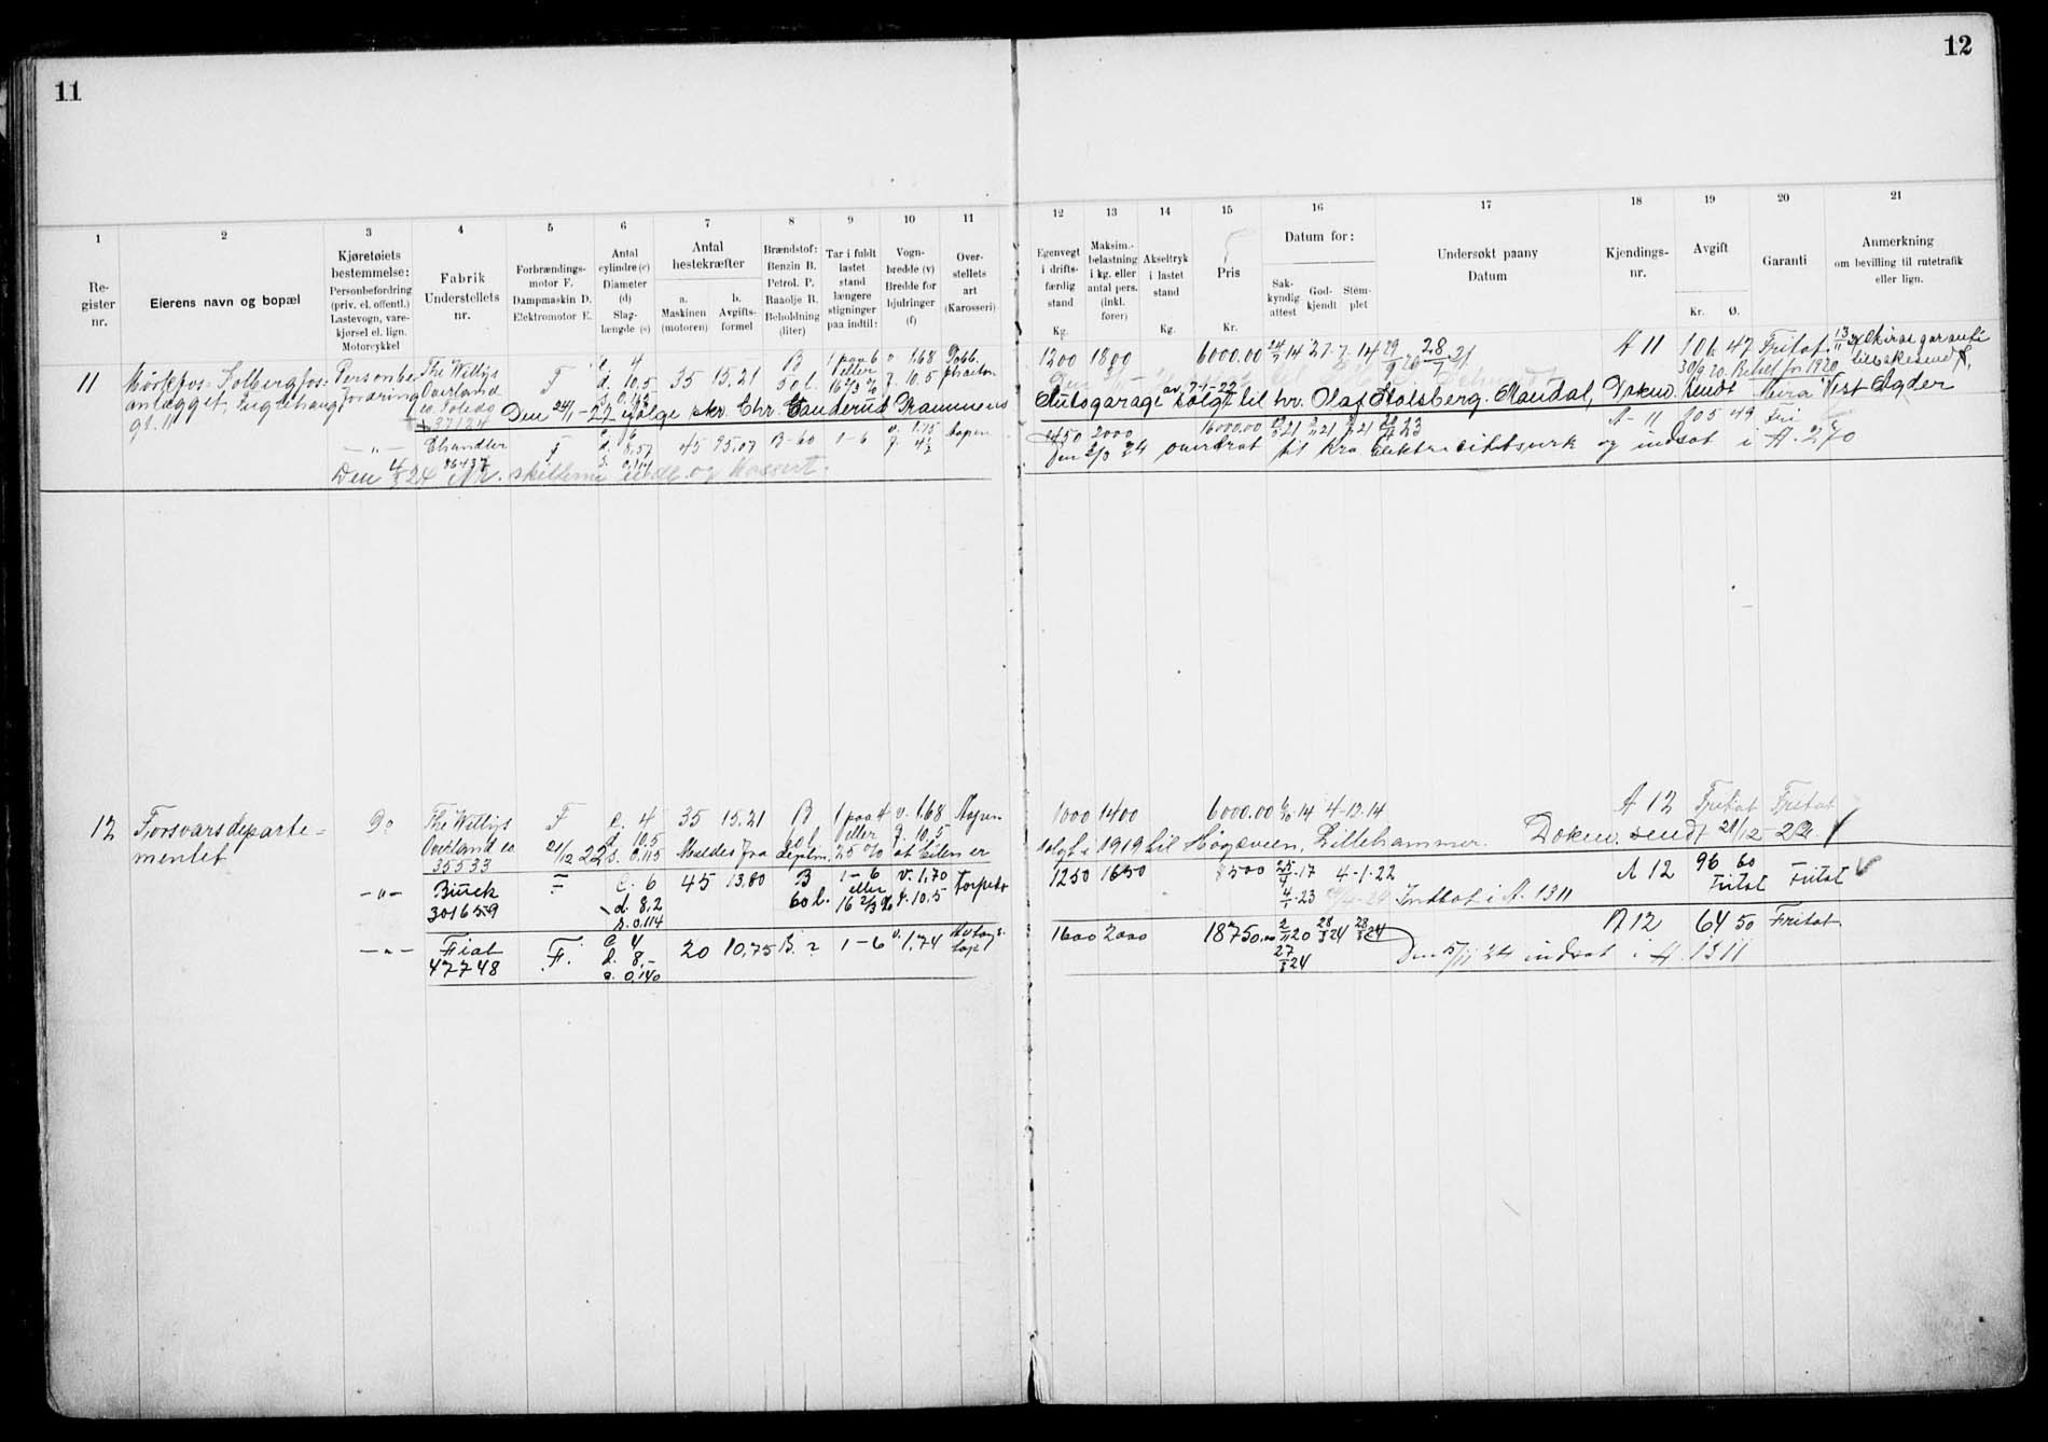 11
12
1 2 3 4 5 6 7 8 9 10 11 12 13 14 15 16 17 18 19 20 21
Register nr.
Eierens navn og bopæl
Kjøretøiets bestemmelse: Personbefordring (priv. el. offentl.) Lastevogn, varekjørsel el. lign. Motorcykkel
Fabrik Understellets nr.
Forbrændingsmotor F. Dampmaskin D. Elektromotor E.
Antal cylindre (c) Diameter (d) Slaglængde (s)
Antal hestekræfter
a. Maskinen (motoren)
b. Avgiftsformel
Brændstof: Benzin B. Petrol. P. Raaolje R. Beholdning (liter)
Tar i fuldt lastet stand længere stigninger paa indtil:
Vognbredde (v) Bredde for hjulringer (f)
Overstellets art (Karosseri)
Egenvegt i driftsfærdig stand
Kg.
Maksim.-belastning i kg. eller antal pers. (inkl. fører)
Akseltryk i lastet stand
Kg.
Pris
Kr.
Datum for:
Sakkyndig attest
Godkjendt
Stemplet
Undersøkt paany Datum
Kjendings-nr.
Avgift
Kr. Ø.
Garanti
Anmerkning om bevilling til rutetrafik eller lign.
11 Mørkfos-Solbergfos- Personbe The Willys F c. 4 35 15.21 B 1 paa 6 v. 1.68 Dobb. 1200 1800 6000.00 24/7 14 27-7-14 A 11 106 47 Fritat
anlægget fordring Overland d. 10.5 50 l. eller 16 2/3 % f. 10.5 phaeton 30/9 20. Betalt for 1920
gt. 11 co. Toledo
37124 Den 24/1-22 ifølge skr. Chr. Drammens Autogarage av 7-1-22 solgt til hr. Olaf Stolsberg. Mandal, Dokum. sendt Vest Agder
— " — Chandler F c. 6 d. 8,57 45 25,07 B-60 1-6 v. 1.75 1450 2000 16000.00 A-11 205 49 fri
86437 Den 2/3 24 overdrat til Kra Elektricitetsverk og indsat i A. 270
Den 4/3 24 Nr. skilterne
12 Forsvarsdeparte- Do The Willys F c. 4 35 15.21 B 1 paa 4 v. 1.68 Aapen 1000 1400 6000.00 4-12-14 A 12 Fritat Fritat
mentet Overland co. 21/12 22 d. 10.5 s. 0.115 60 l eller f. 10.5
35533 Meldes fra deptm. 25 % at bilen er solgt i 1919 til Høgeveien, Lillehammer. Dokum. sendt 21/12-22.
— " — Buick F c. 6 45 13.80 B 1-6 v. 1,70 Torpedo 1250 1650 8500 25/9-17 4-1-22 A 12 96 60 Fritat Fritat
301659 d. 8,2 60 l. eller 16 2/3 % f. 10.5 4/1-23 Indsat i A. 1311
s. 0.114
— " — Fiat F. c. 4 20 10,75 B. ? 1-6 v. 1,74 1600 2000 18750.00 2/11 20 28/3 24 28/3 24 A 12 64 50 Fritat
47748 d. 8,- 27/3 24 Den 5/11 24 indsat i A 1311
s. 0,140